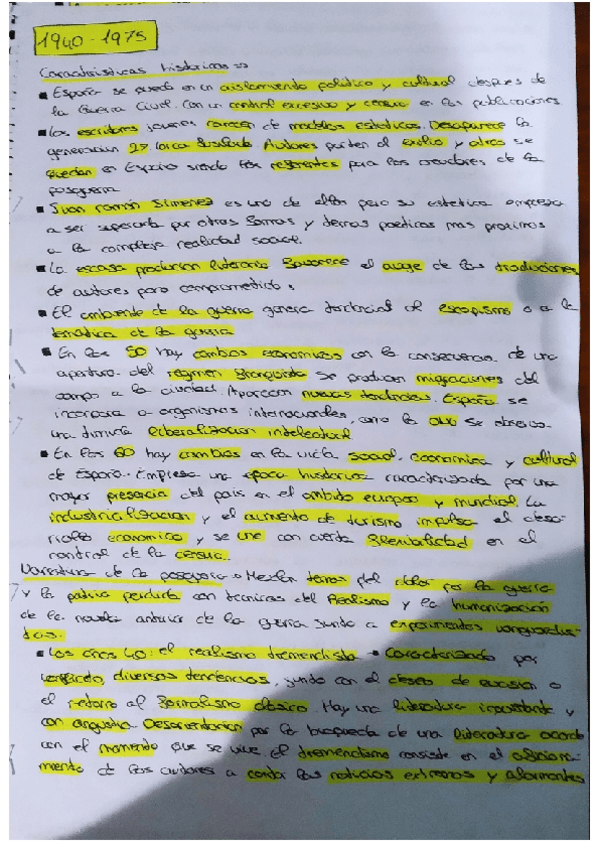 1940-1975
Características históricas =>
▪ España se queda en un aislamiento político y cultural después de
la Guerra Civil. Con un control excesivo y censura en las publicaciones.
▪ Los escritores jóvenes carecen de modelos estéticos. Desaparece la
generación 27, Lorca fusilado. Autores parten al exilio y otros se
quedan en España siendo los referentes para los creadores de la
posguerra.
▪ Juan Ramón Jiménez es uno de ellos pero su estética empieza
a ser superada por otras formas y temas poéticos mas proximos
a la compleja realidad social.
▪ La escasa producion literaria favorece el auge de las traduciones
de autores poco comprometidos.
▪ El ambiente de la guerra genera tendencia al escapismo o a la
temática de la guerra
▪ En los 50 hay cambios económicos con la consecuencia de una
apertura del régimen franquista se producen migraciones del
campo a la ciudad. Aparecen nuevas tendencias. España se
incorpora a organismos internacionales, como la ONU se observa
una tímida liberalización intelectual
▪ En los 60 hay cambios en la vida social, economica y cultural
de España. Empieza una época historica caracterizada por una
mayor presencia del país en el ambito europeo y mundial. La
industrialización y el aumento de turismo impulsa el desa-
rrollo economico y se une con cierta flexibilidad en el
control de la censura.
Narrativa de la posguerra → Mezclan temas del dolor por la guerra
y la patria perdida con tecnicas del Realismo y la humanización
de la novela anterior de la guerra junto a experimentos vanguardis-
tas.
▪ Los años 40: el realismo tremendista → Caracterizado por
diversas tendencias, junto con el deseo de evasion o
el retorno al formalismo clásico. Hay una literatura inquietante y
con angustia. Desorientación por la busqueda de una literatura acorde
con el momento que se vive. El tremendismo consiste en el
de los autores a contar las noticias extremas y alarmantes